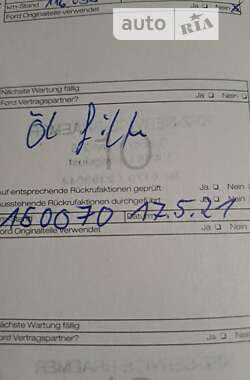 auto RIA
km-Stand
Ford Originalteile verwendet Ja ❑ Nein
Nächste Wartung fällig
Ford Vertragspartner? Ja ❑ Nein
Öl filter
Auf entsprechende Rückrufaktionen geprüft Ja ❑ Nein
Ausstehende Rückrufaktionen durchgeführt Ja ❑ Nein
160070 Datum 17.5.21
Ford Originalteile verwendet Ja ❑ Nein
Nächste Wartung fällig
Ford Vertragspartner? Ja ❑ Nein